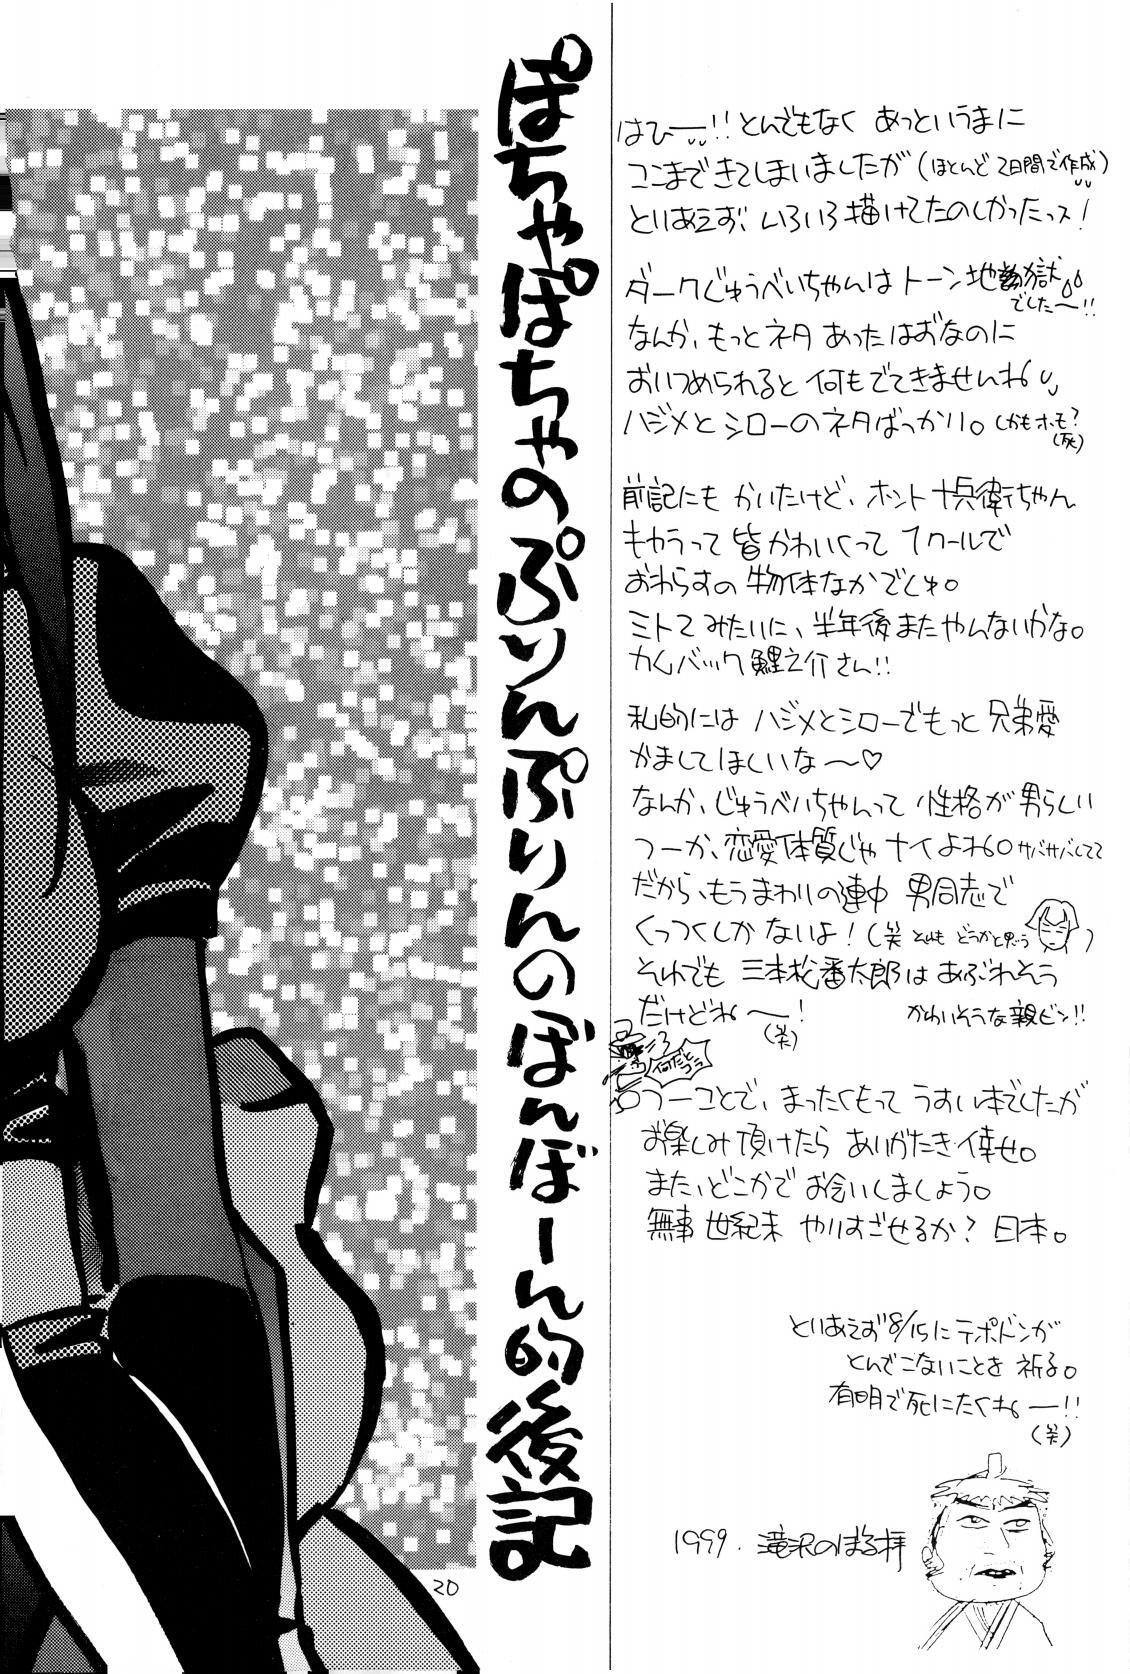 ぽちゃぽちゃのぷりんぷりんのぼんぼーん的後記
はひー!!とんでもなく あっというまに
ここまできてしまいましたが(ほとんど 2日間で作成)
とりあえず、いろいろ描けてたのしかったっス!
ダークじゅうべいちゃんは トーン地獄
でした〜!!
なんか、もっとネタ あったはずなのに
おいつめられると 何もでてきませんね
ハジメとシローのネタばっかり。しかもホモ?
(死)
前記にも かいたけど、ホント 十兵衛ちゃん
キャラって 皆かわいくって 1クールで
おわらすの 勿体なかでしゅ。
ミトてみたいに、半年後またやんないかな。
カムバック 鯉之介さん!!
私的には ハジメとシローでもっと 兄弟愛
かましてほしいな〜♡
なんか、じゅうべいちゃんって 性格が男らしい
つーか、恋愛体質じゃナイよね。サバサバしてて
だから、もうまわりの連中 男同志で
くっつくしか ないよ!(笑 それも どうかと思う)
それでも 三本松番太郎は あぶれそう
だけどね〜!
(笑)
かわいそうな親ビン!!
何だとう
つーことで、まったくもって うすい本でしたが
お楽しみ頂けたら ありがたき 倖せ。
また、どこかで お会いしましょう。
無事 世紀末 やりすごせるか? 日本。
とりあえず 8/15に テポドンが
とんでこないことを 祈る。
有明で死にたくねー!!
(笑)
1999. 滝沢のぼる拝
20